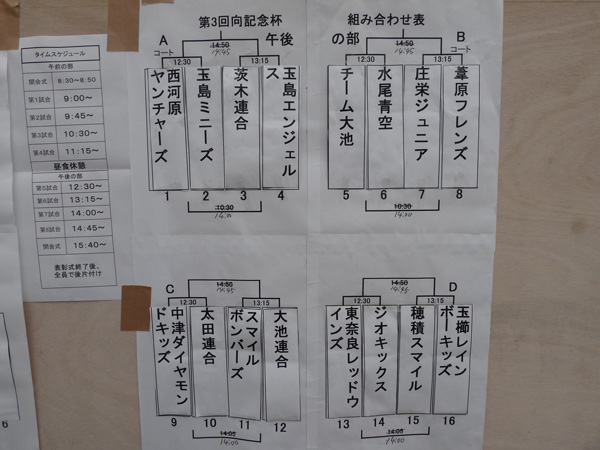 第3回向記念杯 組み合わせ表
午後の部
タイムスケジュール
午前の部
開会式 8:30～8:50
第1試合 9:00～
第2試合 9:45～
第3試合 10:30～
第4試合 11:15～
昼食休憩
午後の部
第5試合 12:30～
第6試合 13:15～
第7試合 14:00～
第8試合 14:45～
閉会式 15:40～
表彰式終了後、
全員で後片付け
A
コート
14:50
14:45
12:30
13:15
西河原ヤンチャーズ
玉島ミニーズ
茨木連合
玉島エンジェルス
1 2 3 4
10:30
14:00
B
コート
14:50
14:45
12:30
13:15
チーム大池
水尾青空
庄栄ジュニア
葦原フレンズ
5 6 7 8
10:30
14:00
C
14:50
14:45
12:30
13:15
中津ダイヤモンドキッズ
太田連合
スマイルボンバーズ
大池連合
9 10 11 12
14:05
14:00
D
14:50
14:45
12:30
13:15
東奈良レッドウインズ
ジオキックス
穂積スマイル
玉櫛レインボーキッズ
13 14 15 16
14:05
14:00
6